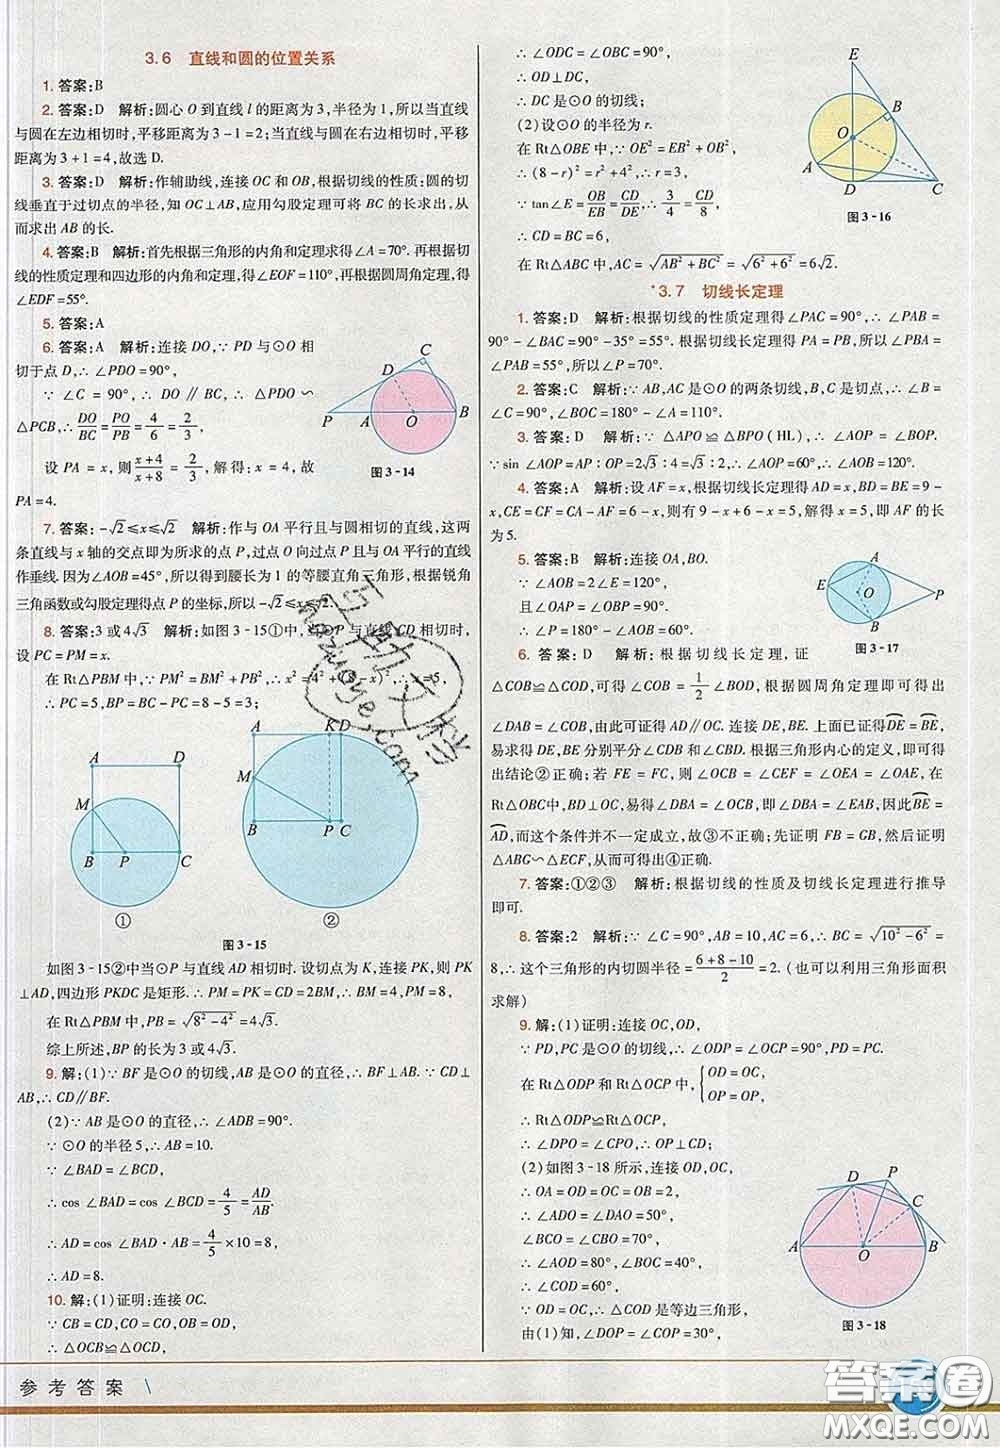 3.6 直线和圆的位置关系
1. 答案:B
2. 答案:D 解析:圆心 O 到直线 l 的距离为 3,半径为 1,所以当直线
与圆在左边相切时,平移距离为 3-1=2;当直线与圆在右边相切时,平移
距离为 3+1=4,故选 D.
3. 答案:D 解析:作辅助线,连接 OC 和 OB,根据切线的性质:圆的切
线垂直于过切点的半径,知 OC⊥AB,应用勾股定理可将 BC 的长求出,从
而求出 AB 的长.
4. 答案:B 解析:首先根据三角形的内角和定理求得∠A=70°.再根据切
线的性质定理和四边形的内角和定理,得∠EOF=110°,再根据圆周角定理,得
∠EDF=55°.
5. 答案:A
6. 答案:A 解析:连接 DO,∵PD 与⊙O 相
切于点 D,∴∠PDO=90°,
∵∠C=90°,∴DO∥BC,∴△PDO∽
△PCB,∴DO/BC=PO/PB=4/6=2/3,
设 PA=x,则(x+4)/(x+8)=2/3,解得:x=4,故
PA=4.
P A O B D C
图 3-14
7. 答案:-√2≤x≤√2 解析:作与 OA 平行且与圆相切的直线,这两
条直线与 x 轴的交点即为所求的点 P,过点 O 向过点 P 与 OA 平行的直线
作垂线.因为∠AOB=45°,所以得到腰长为 1 的等腰直角三角形,根据锐角
三角函数或勾股定理得点 P 的坐标,所以-√2≤x≤√2.
8. 答案:3 或 4√3 解析:如图 3-15①中,当⊙P 与直线 CD 相切时,
设 PC=PM=x.
在 Rt△PBM 中,∵PM²=BM²+PB²,∴x²=4²+(8-x)²,∴x=5,
∴PC=5,BP=BC-PC=8-5=3;
A D M B P C
①
A K D M B P C
②
图 3-15
如图 3-15②中当⊙P 与直线 AD 相切时.设切点为 K,连接 PK,则 PK
⊥AD,四边形 PKDC 是矩形.∴PM=PK=CD=2BM,∴BM=4,PM=8,
在 Rt△PBM 中,PB=√(8²-4²)=4√3.
综上所述,BP 的长为 3 或 4√3.
9. 解:(1)∵BF 是⊙O 的切线,AB 是⊙O 的直径,∴BF⊥AB.∵CD⊥
AB,∴CD∥BF.
(2)∵AB 是⊙O 的直径,∴∠ADB=90°.
∵⊙O 的半径 5,∴AB=10.
∵∠BAD=∠BCD,
∴cos∠BAD=cos∠BCD=4/5=AD/AB.
∴AD=cos∠BAD·AB=4/5×10=8,
∴AD=8.
10. 解:(1)证明:连接 OC.
∵CB=CD,CO=CO,OB=OD,
∴△OCB≌△OCD,
∴∠ODC=∠OBC=90°,
∴OD⊥DC,
∴DC 是⊙O 的切线;
(2)设⊙O 的半径为 r.
在 Rt△OBE 中,∵OE²=EB²+OB²,
∴(8-r)²=r²+4²,∴r=3,
∵tan∠E=OB/EB=CD/DE,∴3/4=CD/8,
∴CD=BC=6,
在 Rt△ABC 中,AC=√(AB²+BC²)=√(6²+6²)=6√2.
E B O A D C
图 3-16
*3.7 切线长定理
1. 答案:D 解析:根据切线的性质定理得∠PAC=90°,∴∠PAB=
90°-∠BAC=90°-35°=55°.根据切线长定理得 PA=PB,所以∠PBA
=∠PAB=55°,所以∠P=70°.
2. 答案:C 解析:∵AB,AC 是⊙O 的两条切线,B,C 是切点,∴∠B=
∠C=90°,∠BOC=180°-∠A=110°.
3. 答案:D 解析:∵△APO≌△BPO(HL),∴∠AOP=∠BOP.
∵sin∠AOP=AP∶OP=2√3∶4=√3∶2,∴∠AOP=60°,∴∠AOB=120°.
4. 答案:A 解析:设 AF=x,根据切线长定理得 AD=x,BD=BE=9-
x,CE=CF=CA-AF=6-x,则有 9-x+6-x=5,解得 x=5,即 AF 的长
为 5.
5. 答案:B 解析:连接 OA,BO.
∵∠AOB=2∠E=120°,
且∠OAP=∠OBP=90°,
∴∠P=180°-∠AOB=60°.
E A O P B
图 3-17
6. 答案:D 解析:根据切线长定理,证
△COB≌△COD,可得∠COB=1/2∠BOD,根据圆周角定理即可得出
∠DAB=∠COB,由此可证得 AD∥OC.连接 DE,BE.上面已证得DE=BE,
易求得 DE,BE 分别平分∠CDB 和∠CBD.根据三角形内心的定义,即可得
出结论②正确;若 FE=FC,则∠OCB=∠CEF=∠OEA=∠OAE,在
Rt△OBC中,BD⊥OC,易得∠DBA=∠OCB,即∠DBA=∠EAB,因此BE=
AD,而这个条件并不一定成立,故③不正确;先证明 FB=GB,然后证明
△ABG∽△ECF,从而可得出④正确.
7. 答案:①②③ 解析:根据切线的性质及切线长定理进行推导
即可.
8. 答案:2 解析:∵∠C=90°,AB=10,AC=6,∴BC=√(10²-6²)=
8,∴这个三角形的内切圆半径=(6+8-10)/2=2.(也可以利用三角形面积
求解)
9. 解:(1)证明:连接 OC,OD,
∵PD,PC 是⊙O 的切线,∴∠ODP=∠OCP=90°,PD=PC.
在 Rt△ODP 和 Rt△OCP 中,{OD=OC,
OP=OP,
∴Rt△ODP≌Rt△OCP,
∴∠DPO=∠CPO,∴OP⊥CD;
(2)如图 3-18 所示,连接 OD,OC,
∴OA=OD=OC=OB=2,
∴∠ADO=∠DAO=50°,
∠BCO=∠CBO=70°,
∴∠COD=60°,
∵OD=OC,∴△COD 是等边三角形,
由(1)知,∠DOP=∠COP=30°,
D P C A O B
图 3-18
参考答案
答案圈
MXQE.COM